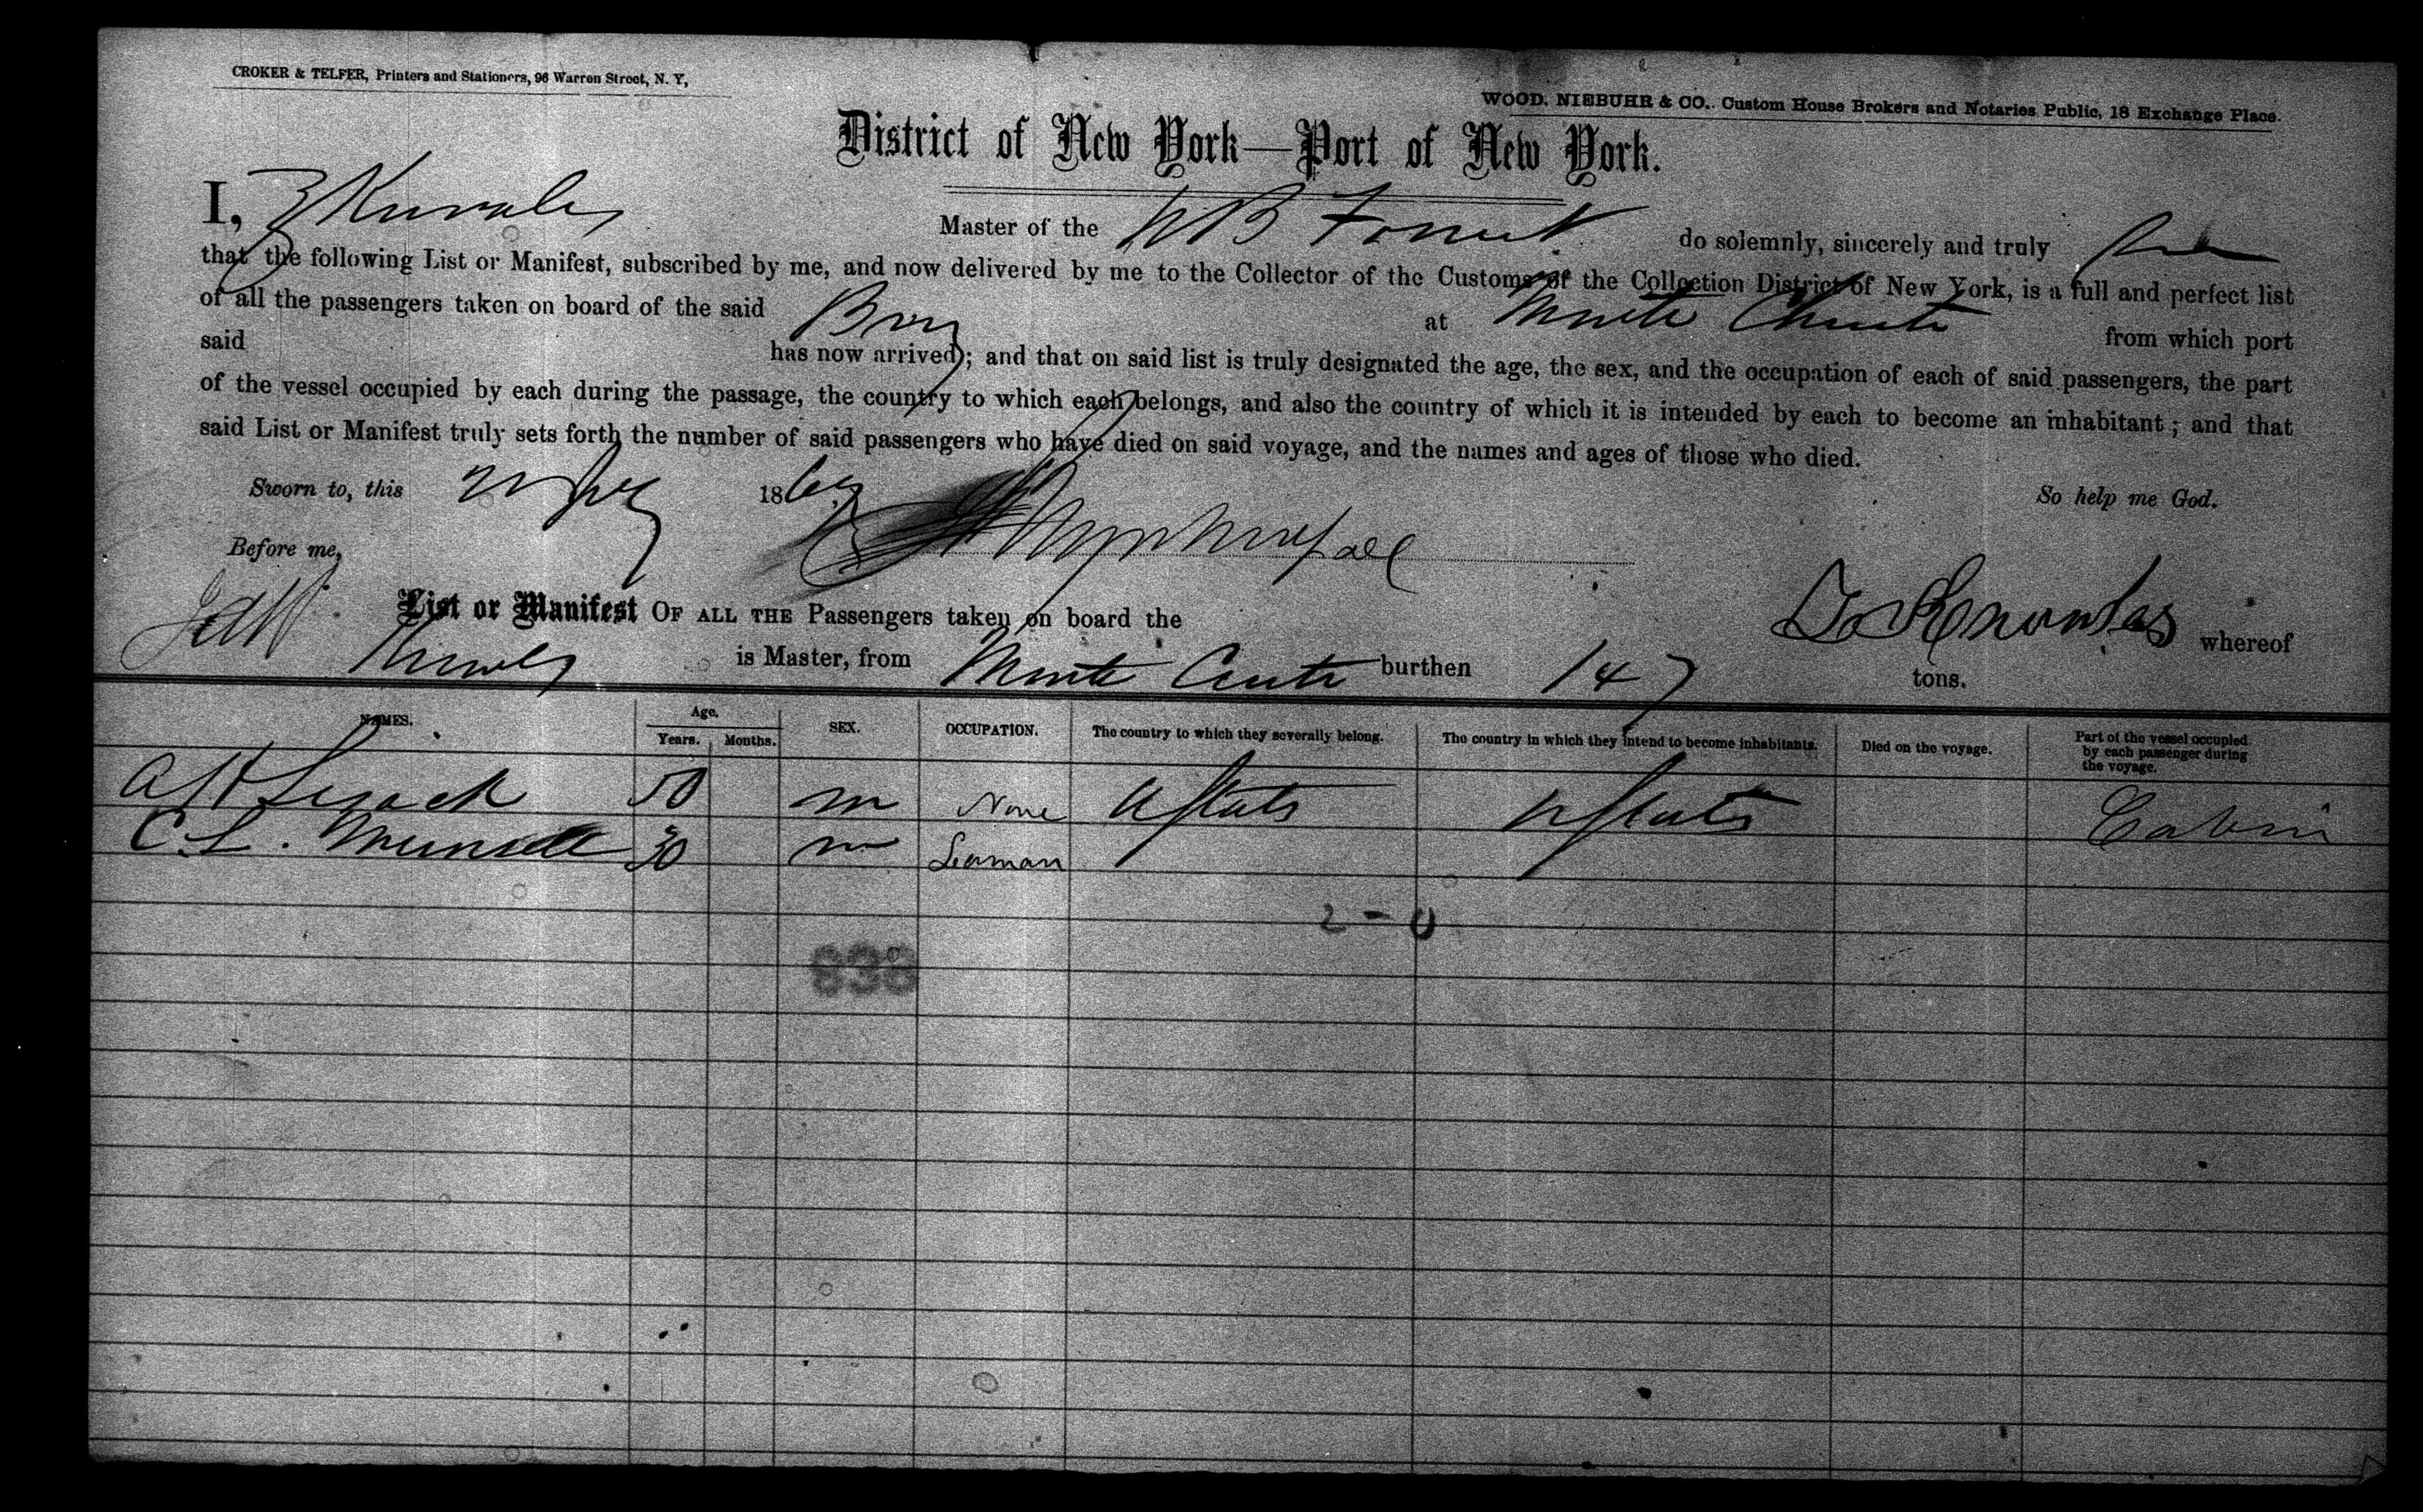 CROKER & TELFER, Printers and Stationers, 96 Warren Street, N. Y,
WOOD. NIEBUHR & CO.. Custom House Brokers and Notaries Public, 18 Exchange Place.
District of New York—Port of New York.
I, Knowles Master of the W B Forrest do solemnly, sincerely and truly
that the following List or Manifest, subscribed by me, and now delivered by me to the Collector of the Customs of the Collection District of New York, is a full and perfect list
of all the passengers taken on board of the said Brig at Monte Christi from which port
said has now arrived; and that on said list is truly designated the age, the sex, and the occupation of each of said passengers, the part
of the vessel occupied by each during the passage, the country to which each belongs, and also the country of which it is intended by each to become an inhabitant; and that
said List or Manifest truly sets forth the number of said passengers who have died on said voyage, and the names and ages of those who died.
Sworn to, this 186 So help me God.
Before me,
List or Manifest OF ALL THE Passengers taken on board the Knowles whereof
Knowles is Master, from Monte Cristi burthen 147 tons.
NAMES. Age. Years. Months. SEX. OCCUPATION. The country to which they severally belong. The country in which they intend to become inhabitants. Died on the voyage. Part of the vessel occupied by each passenger during the voyage.
A H 50 m None U States U States Cabin
C. L. 30 m Seaman
2 - 0